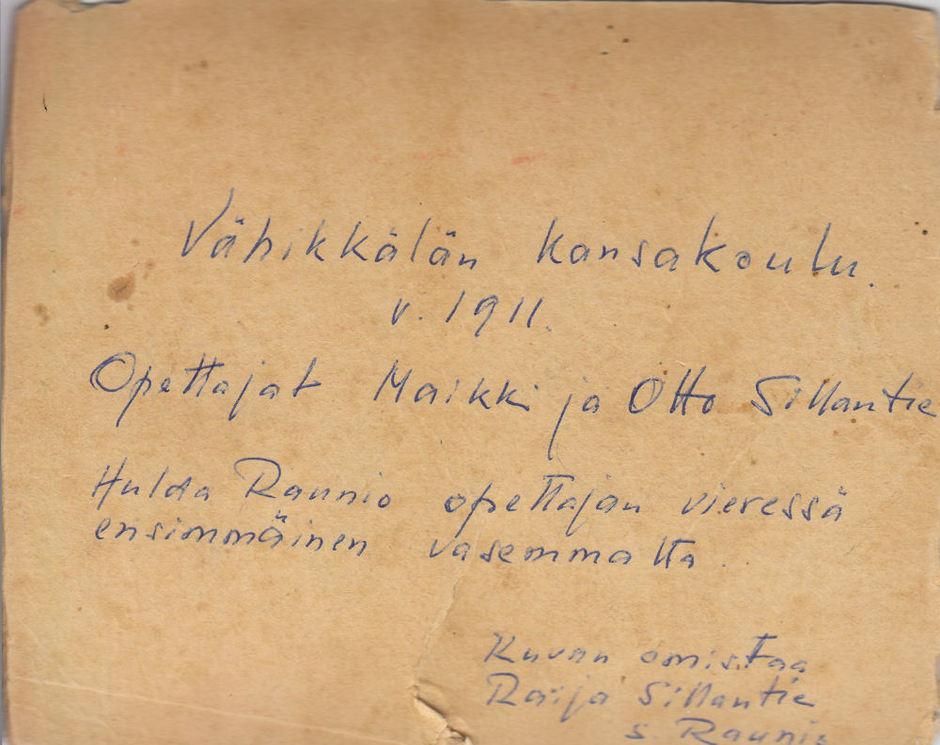 Vähikkälän kansakoulu.
v. 1911.
Opettajat Maikki ja Otto Sillantie
Hulda Raunio opettajan vieressä
ensimmäinen vasemmatta.
Kuvan omistaa
Raija Sillantie
s. Raunio